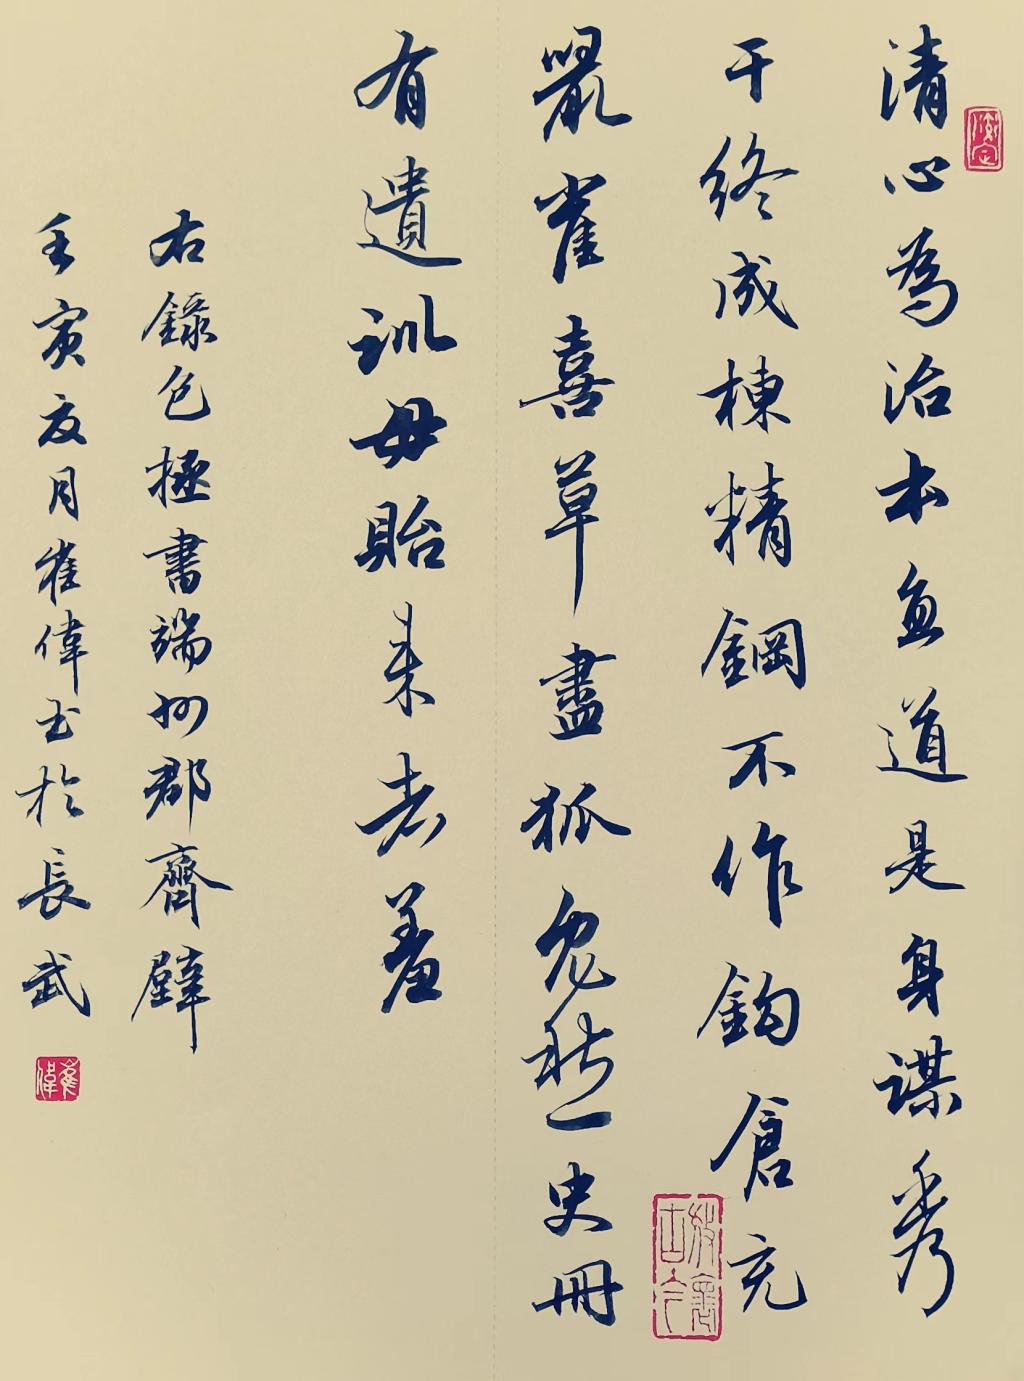 清心為治本直道是身謀秀
干終成棟精鋼不作鈎倉充
鼠雀喜草盡狐兔愁史冊
有遺訓毋貽來者羞
右錄包拯書端州郡齊壁
壬寅夏月崔偉书於長武
崔偉